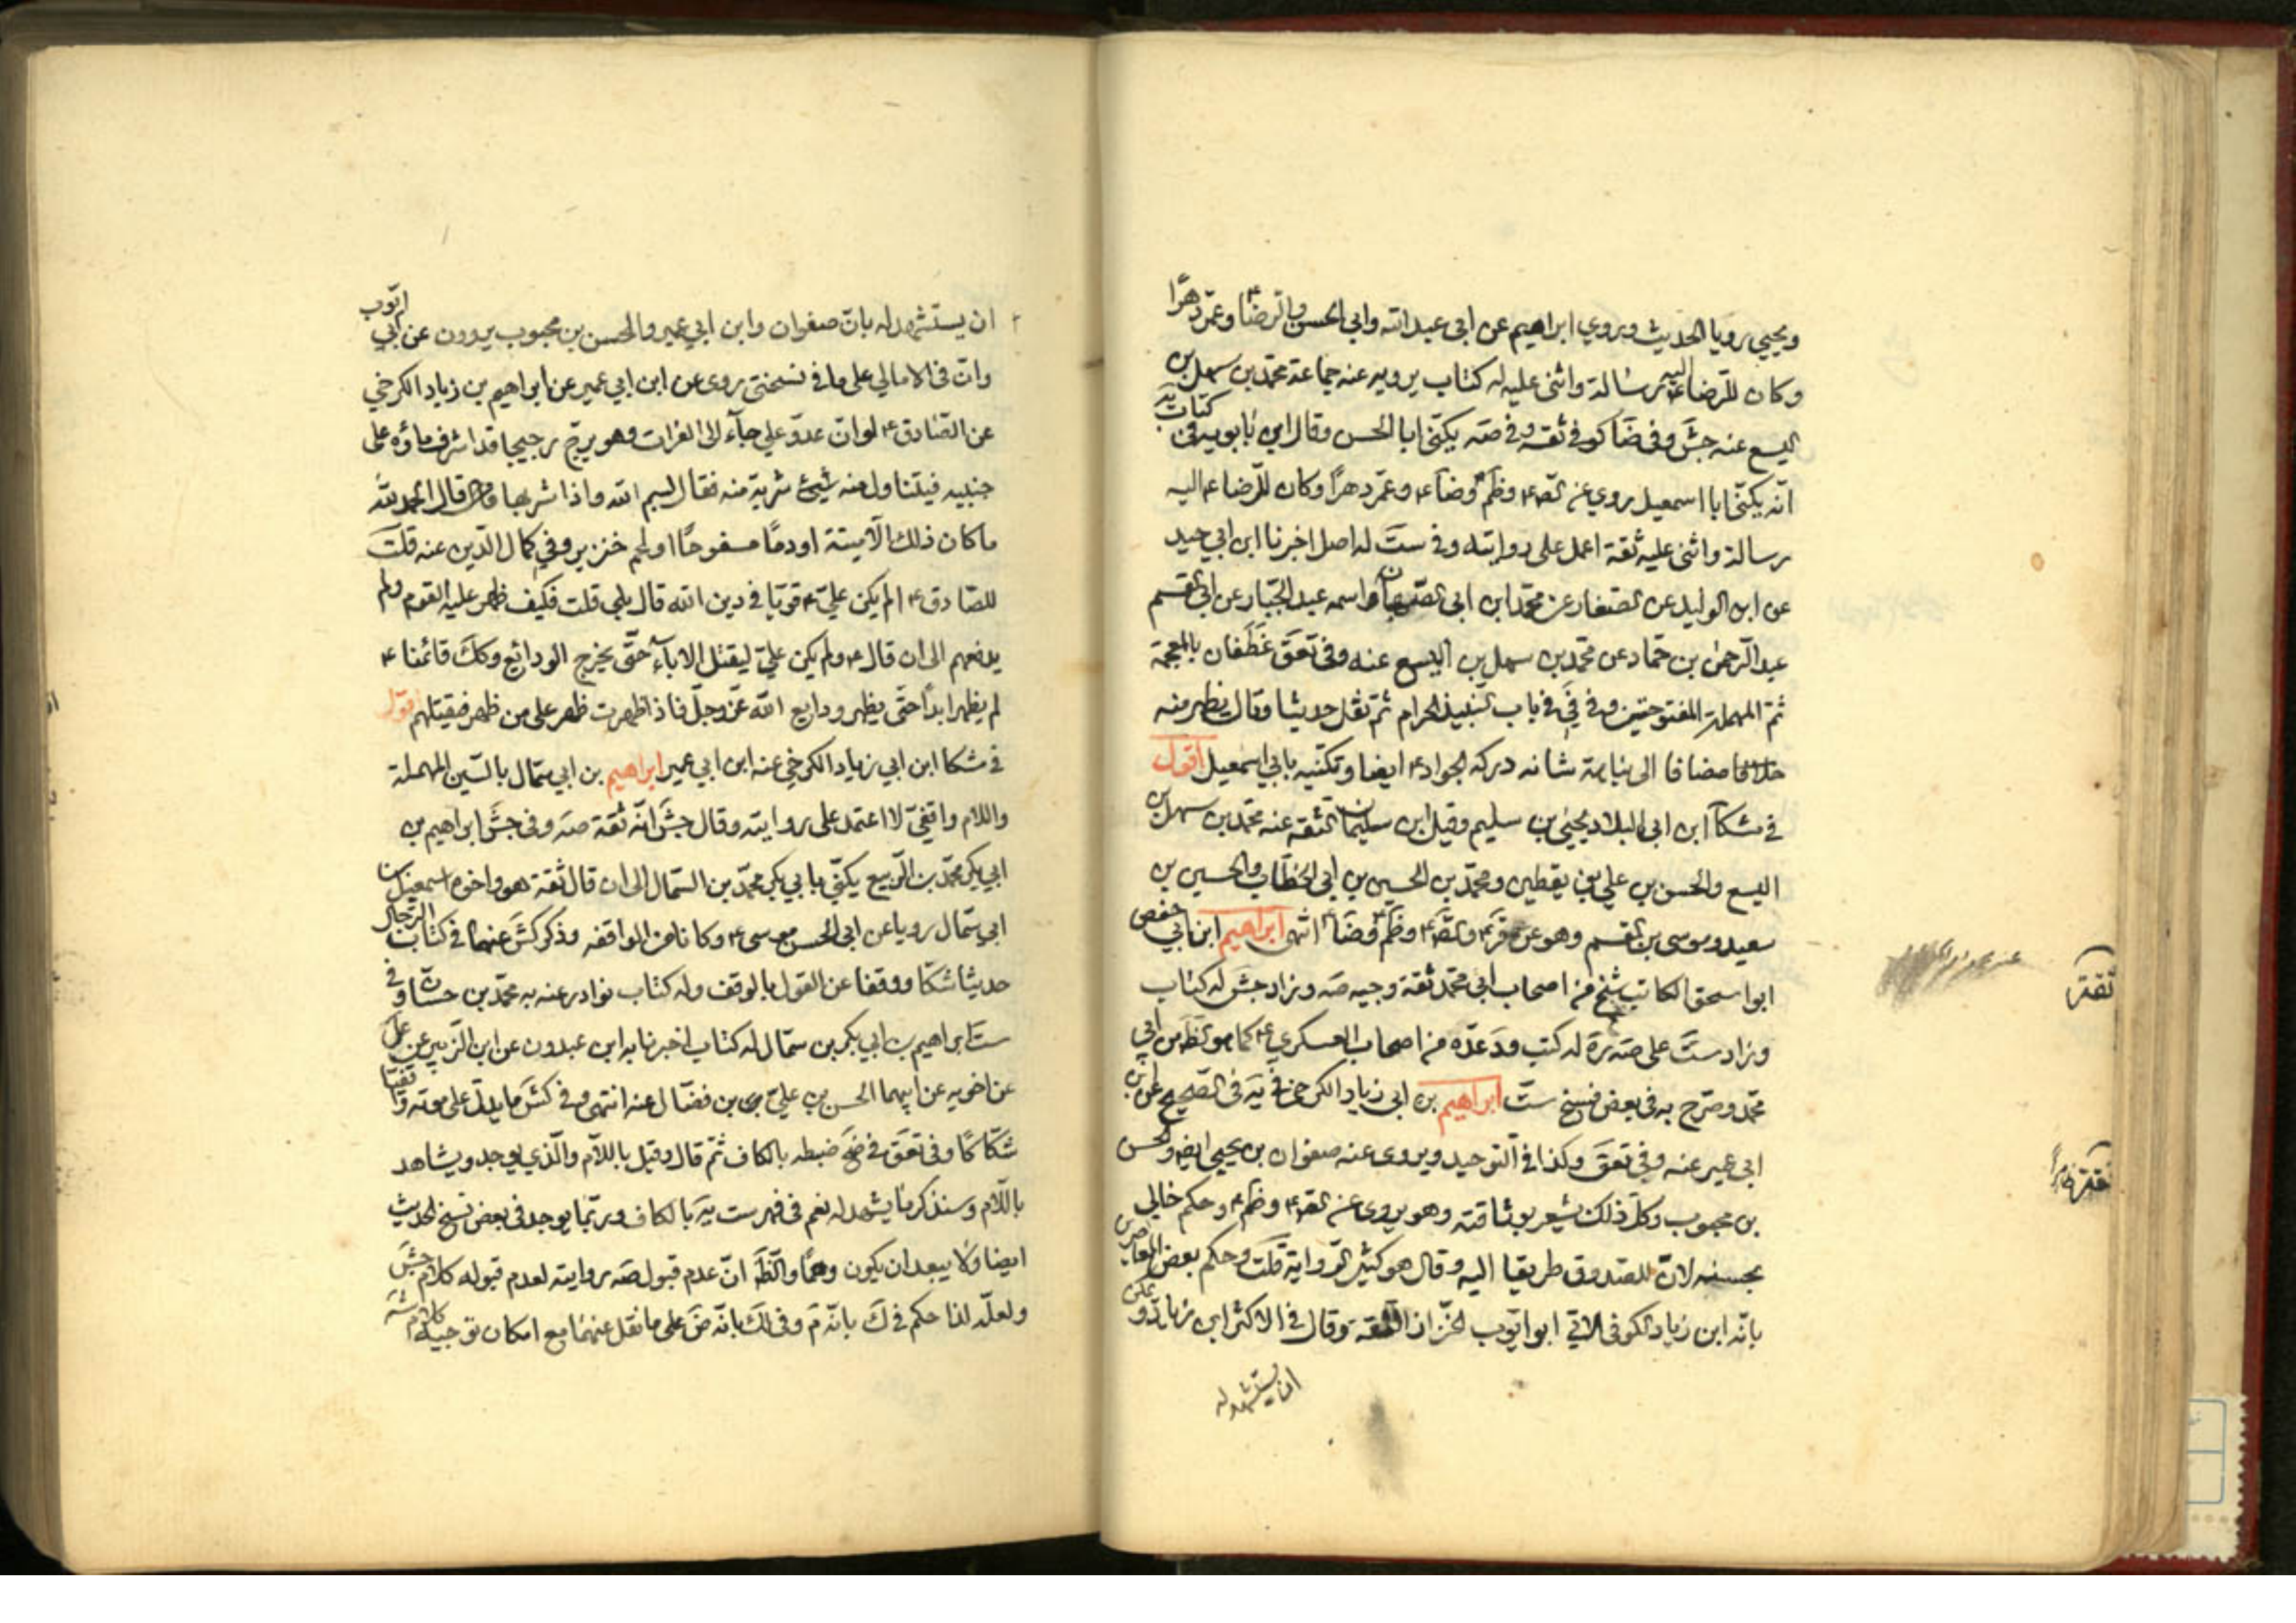 ويحيى رويا الحديث ويروي ابراهيم عن ابي عبد الله وابي الحسن والرضا ع وعمّر دهرًا
وكان للرضا ع اليه رسالة واثنى عليه له كتاب يرويه عنه جماعة محمد بن سهل بن
اليسع عنه جش وفي ضا كوفي ثقة وفي صه يكنى ابا الحسن وقال ابن بابويه في كتابه
انّه يكنّى ابا اسمعيل روى عن لصه ع وظم ع وضا ع وعمّر دهرًا وكان للرضا ع اليه
رسالة واثنى عليه ثقة اعمل على روايته وفي ست له اصل اخبرنا ابن ابي جيد
عن ابن الوليد عن الصفار عن محمد ابن ابي الصهبان واسمه عبد الجبار عن ابي القسم
عبد الرحمن بن حمّاد عن محمد بن سهل بن اليسع عنه وفي تعق غطفان بالمعجمة
ثم المهملة المفتوحتين وفي في في باب النبيذ الحرام ثم نقل حديثا وقال يظهر منه
مضافا الى نباهة شانه دركه الجواد ع ايضا وتكنيه بابي اسمعيل اقول
في مشكا ابن ابي البلاد يحيى بن سليم وقيل ابن سليمان الثقة عنه محمد بن سهل بن
اليسع والحسن بن علي بن يقطين ومحمد بن الحسين بن ابي الخطاب والحسين بن
سعيد وموسى بن القسم وهو عن قر ع وق ع وظم ع وضا ع انتهى ابراهيم ابن ابي حفص
ابو اسحق الكاتب شيخ من اصحاب ابي محمد ثقة وجيه صه وزاد جش له كتاب
وزاد ست على صه له كتب وعدّه من اصحاب العسكري ع كما هو الظ من ابي
محمد وصرح به في بعض نسخ ست ابراهيم بن ابي زياد الكرخي في يه في الصحيح عن ابن
ابي عمير عنه وفي تعق وكذا في التوحيد ويروى عنه صفوان بن يحيى ايضا والحسن
بن محبوب وكل ذلك يشعر بوثاقته وهو يروى عن لصه ع وظم ع وحكم خالي
بحسنه لان للصدوق طريقا اليه وقال هو كثير الرواية قلت وحكم بعض المعاصرين
بانّه ابن زياد الكوفي الاتي ابو ايوب الخزاز الثقة وقال في الاكثر ابن زياد ويمكن
ان يستشهد له
ان يستشهد له بان صفوان وابن ابي عمير والحسن بن محبوب يروون عن ابي ايوب
وان في الامالي على ما في نسختي روى عن ابن ابي عمير عن ابراهيم بن زياد الكرخي
عن الصادق ع لو ان عدوّ علي جاء الى الفرات وهو يزج زجيجا قد اشرف ماؤه على
جنبيه فيتناول منه شربة منه فقال بسم الله واذا شربها قال الحمد لله
ما كان ذلك الا ميتة او دمًا مسفوحًا او لحم خنزير وفي كمال الدين عنه قلت
للصادق ع الم يكن علي ع قويّا في دين الله قال بلى قلت فكيف ظهر عليه القوم ولم
يدفعهم الى ان قال ع ولم يكن عليّ ليقتل الاباء حتى يخرج الودائع وكك قائمنا ع
لم يظهر ابدا حتى يظهر ودايع الله عزّ وجلّ فاذا ظهرت ظهر على من ظهر فيقتلهم اقول
في مشكا ابن ابي زياد الكرخي عنه ابن ابي عمير ابراهيم بن ابي سمّال بالسّين المهملة
واللام واقفيّ لا اعتمد على روايته وقال جش انّه ثقة صه وفي جش ابراهيم بن
ابي بكر محمد بن الربيع يكنّى بابي بكر محمد بن السّمال الى ان قال ثقة هو واخوه اسمعيل بن
ابي سمّال رويا عن ابي الحسن موسى ع وكانا من الواقفة وذكر كش عنهما في كتاب الرجال
حديثا شكّا ووقفا عن القول بالوقف وله كتاب نوادر عنه به محمد بن حسّان وفي
ست ابراهيم بن ابي بكر بن سمّال له كتاب اخبرنا به ابن عبدون عن ابن الزبير عن علي
عن اخويه عن ابيهما الحسن بن علي بن فضّال عنه انتهى وفي كش ما يدلّ على موته
شكّاكًا وفي تعق في ضح ضبطه بالكاف ثم قال وقيل باللام والذي يوجد ويشاهد
باللام وسنذكر ما يشهد له نعم في فهرست يه بالكاف وربّما يوجد في بعض نسخ الحديث
ايضا ولا يبعد ان يكون وهمًا والظ انّ عدم قبول صه روايته لعدم قبوله كلام جش
ولعلّه لذا حكم في ك بانّه م وفي لك بانّه ض على ما نقل عنهما مع امكان توجيه كلامه